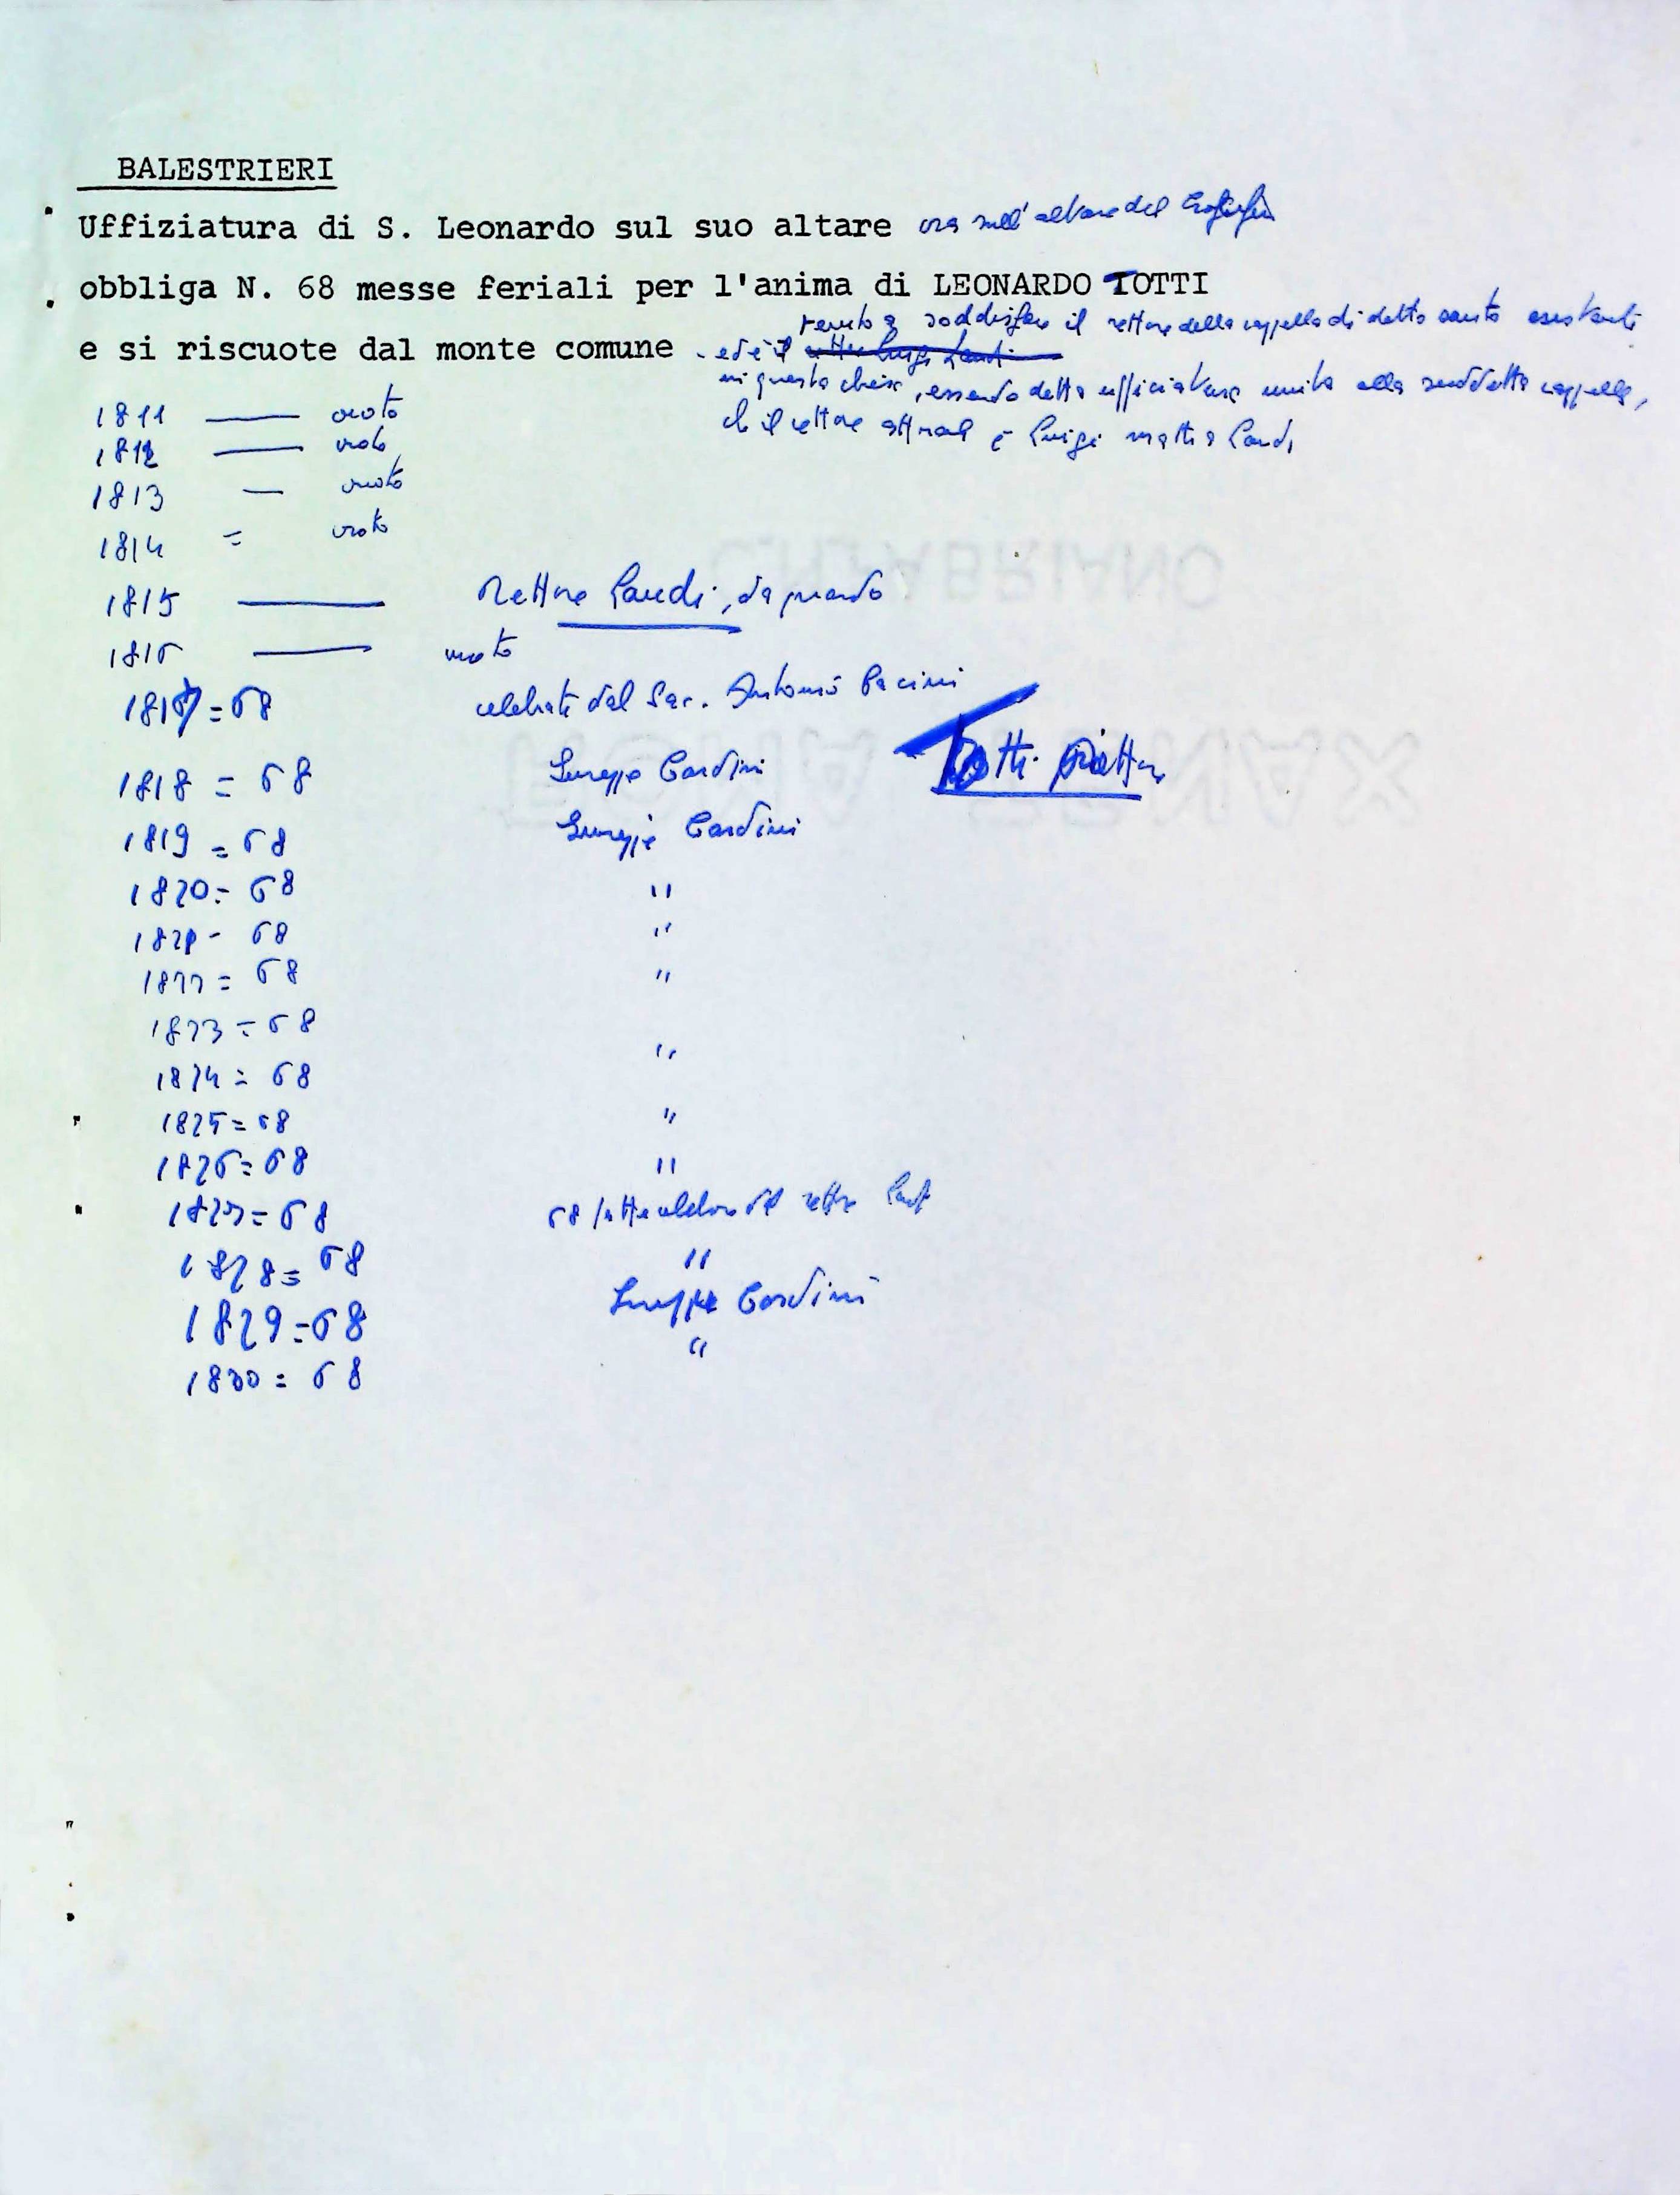 BALESTRIERI
Uffiziatura di S. Leonardo sul suo altare ora sull'altare del Crocifisso
obbliga N. 68 messe feriali per l'anima di LEONARDO TOTTI
tenuto a soddisfare il rettore della cappella di detto santo esistente
e si riscuote dal monte comune . ed è il
in questa chiesa, essendo detta ufficiatura unita alla suddetta cappella,
1811 — vuoto
1812 — vuoto
1813 — vuoto
1814 = vuoto
1815 — Rettore Landi, da quando
1816 — vuoto
1817 = 68 celebrate dal Sac. Antonio Pacini
Totti
1818 = 68 Giuseppe Cardini
1819 = 68 Giuseppe Cardini
1820 = 68 "
1821 - 68 "
1822 = 68 "
1823 = 68
1824 = 68 "
1825 = 68 "
1826 = 68 "
1827 = 68 68
1828 = 68 "
1829 = 68 Giuseppe Cardini
1830 = 68 "